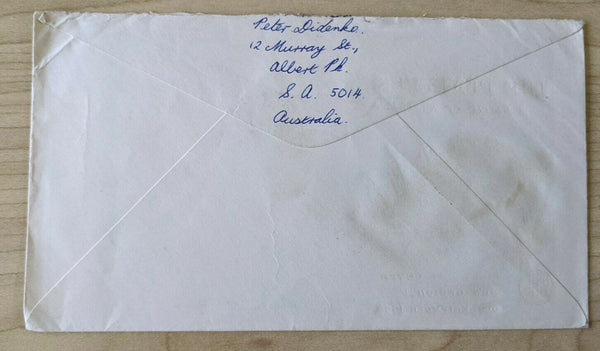 Peter Didenko.
12 Murray St.,
Albert Pk.
S. A. 5014.
Australia.